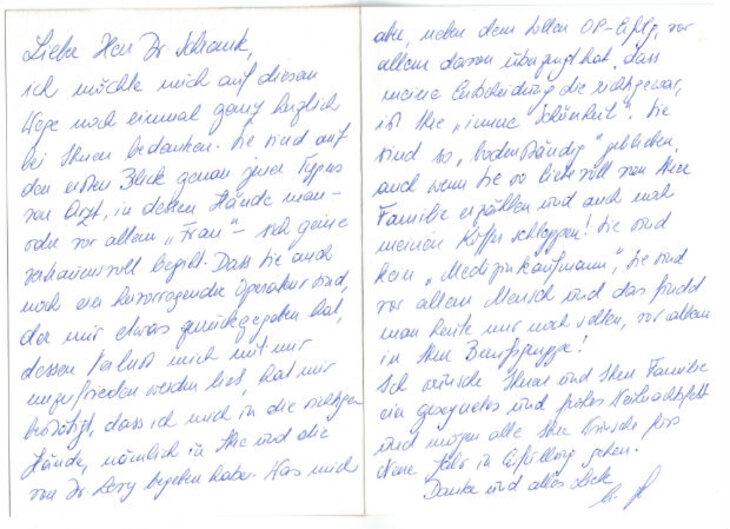 Lieber Herr Dr. Schrank,
ich möchte mich auf diesem
Wege noch einmal ganz herzlich
bei Ihnen bedanken. Sie sind auf
den ersten Blick genau jener Typus
von Arzt, in dessen Hände man -
oder vor allem „Frau" - sich gerne
vertrauensvoll begibt. Dass Sie auch
noch ein hervorragender Operateur sind,
der mir etwas zurückgegeben hat,
dessen Verlust mich mit mir
unzufrieden werden ließ, hat mir
bestätigt, dass ich mich in die richtigen
Hände, nämlich in Ihre und die
von Dr. Levy begeben habe. Was mich
aber, neben dem tollen OP-Erfolg, vor
allem davon überzeugt hat, dass
meine Entscheidung die richtige war,
ist Ihre „innere Schönheit". Sie
sind so „bodenständig" geblieben,
auch wenn Sie so liebevoll von Ihrer
Familie erzählen und auch noch
meinen Koffer schleppen! Sie sind
kein „Medizinkaufmann", Sie sind
vor allem Mensch und das findet
man heute nur noch selten, vor allem
in Ihrer Berufsgruppe!
Ich wünsche Ihnen und Ihrer Familie
ein gesegnetes und frohes Weihnachtsfest
und mögen alle Ihre Wünsche fürs
Neue Jahr in Erfüllung gehen.
Danke und alles Liebe